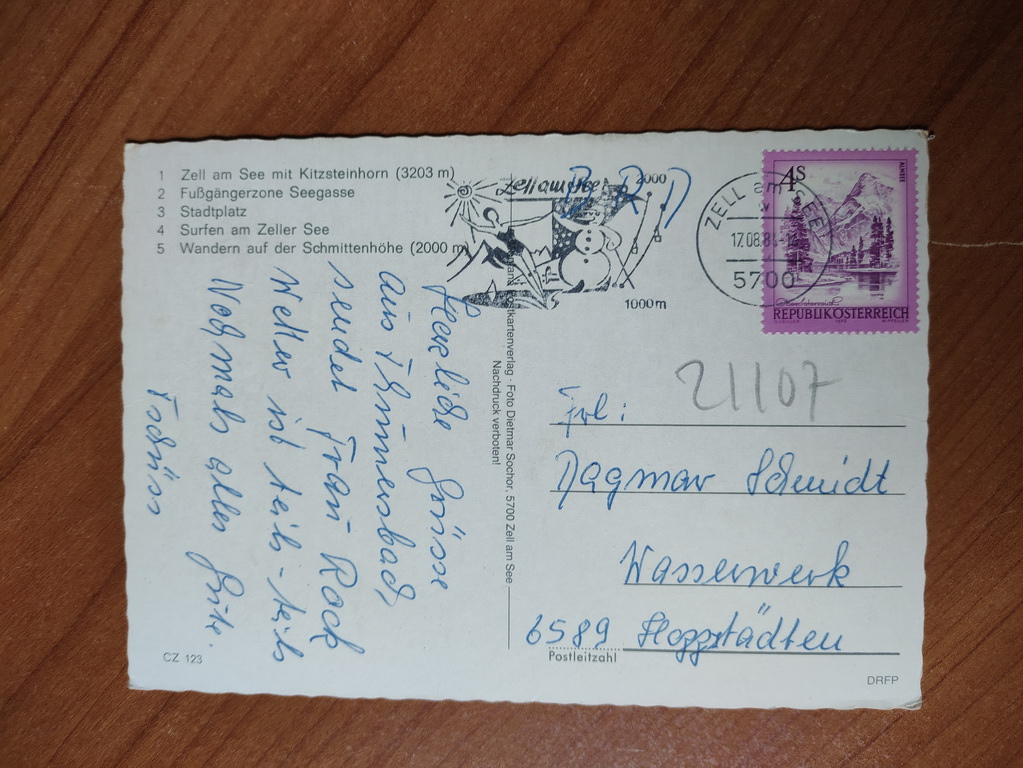 1 Zell am See mit Kitzsteinhorn (3203 m)
2 Fußgängerzone Seegasse
3 Stadtplatz
4 Surfen am Zeller See
5 Wandern auf der Schmittenhöhe (2000 m)
Zell am See
2000
1000 m
BRD
ZELL am SEE
17.08.8
5700
4S
ALMSEE
REPUBLIK ÖSTERREICH
21107
Herzliche Grüsse
aus Thumersbach
sendet Frau Koch
Wetter ist teils-teils
Nochmals alles Gute.
Tschüss
Postkartenverlag · Foto Dietmar Sochor, 5700 Zell am See
Nachdruck verboten!
Frl:
Dagmar Schmidt
Wasserwerk
6589 Hoppstädten
Postleitzahl
CZ 123
DRFP